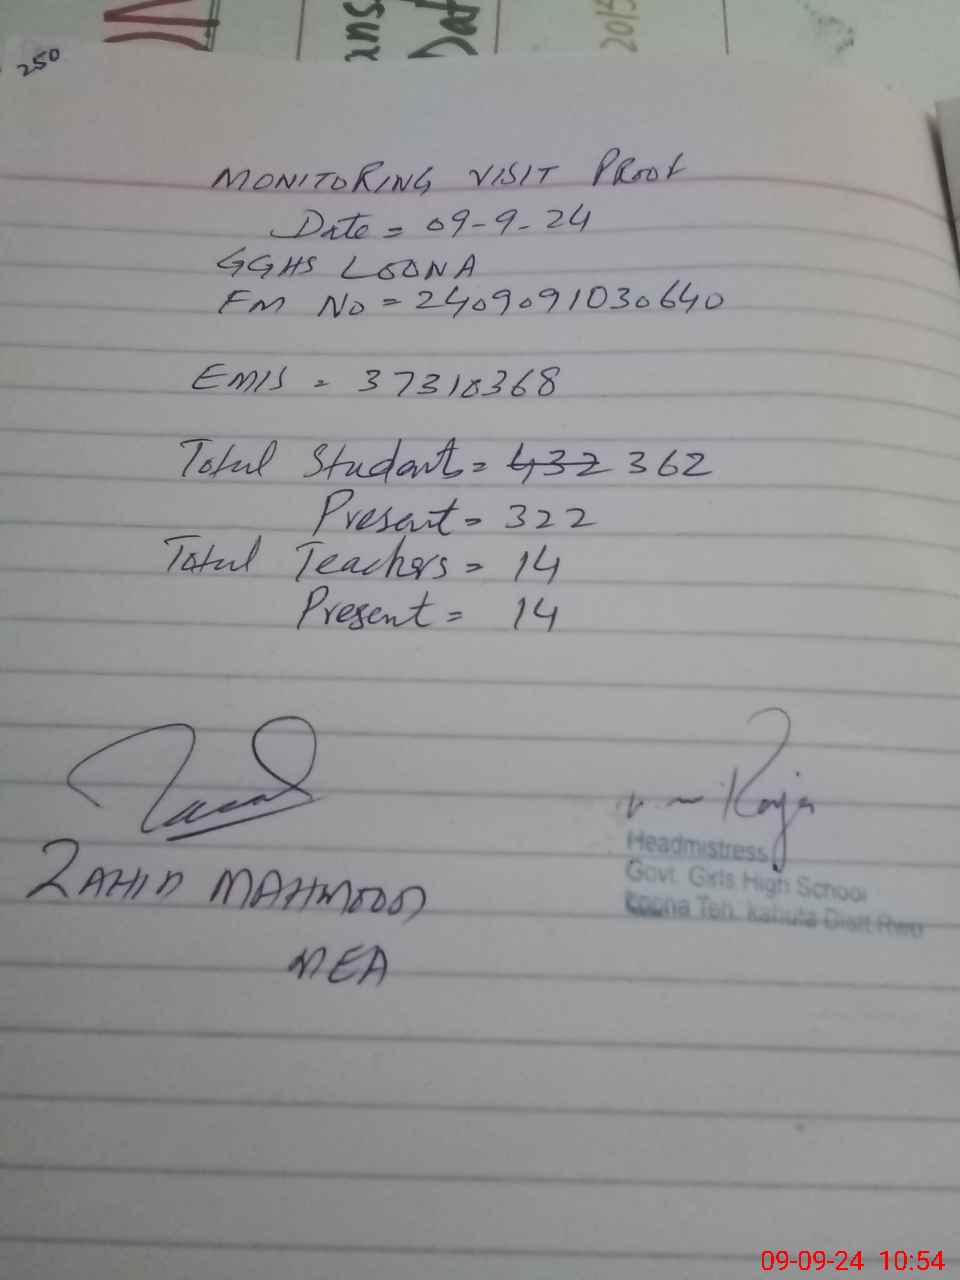 250
MONITORING VISIT PROOF
Date = 09-9-24
GGHS LOONA
FM No = 2409091030640
EMIS = 37310368
Total Students = 432 362
Present = 322
Total Teachers = 14
Present = 14
ZAHID MAHMOOD
MEA
Headmistress
Govt. Girls High School
Loona Teh. kahuta Distt Rwp
2015
09-09-24 10:54